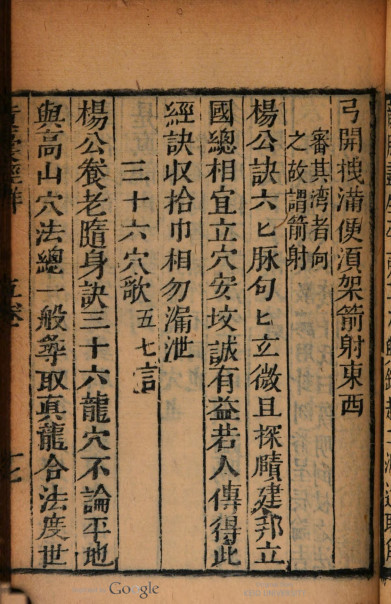 弓開拽滿便湏架箭射東西
審其湾者向
之故謂箭射
楊公訣六匕脉句匕玄微且探賾建邦立
國總相宜立穴安坟誠有益若人傳得此
經訣收拾巾相勿漏泄
三十六穴歌五七言
楊公養老隨身訣三十六龍穴不論平地
與高山穴法總一般尋取真龍合法度世
Google